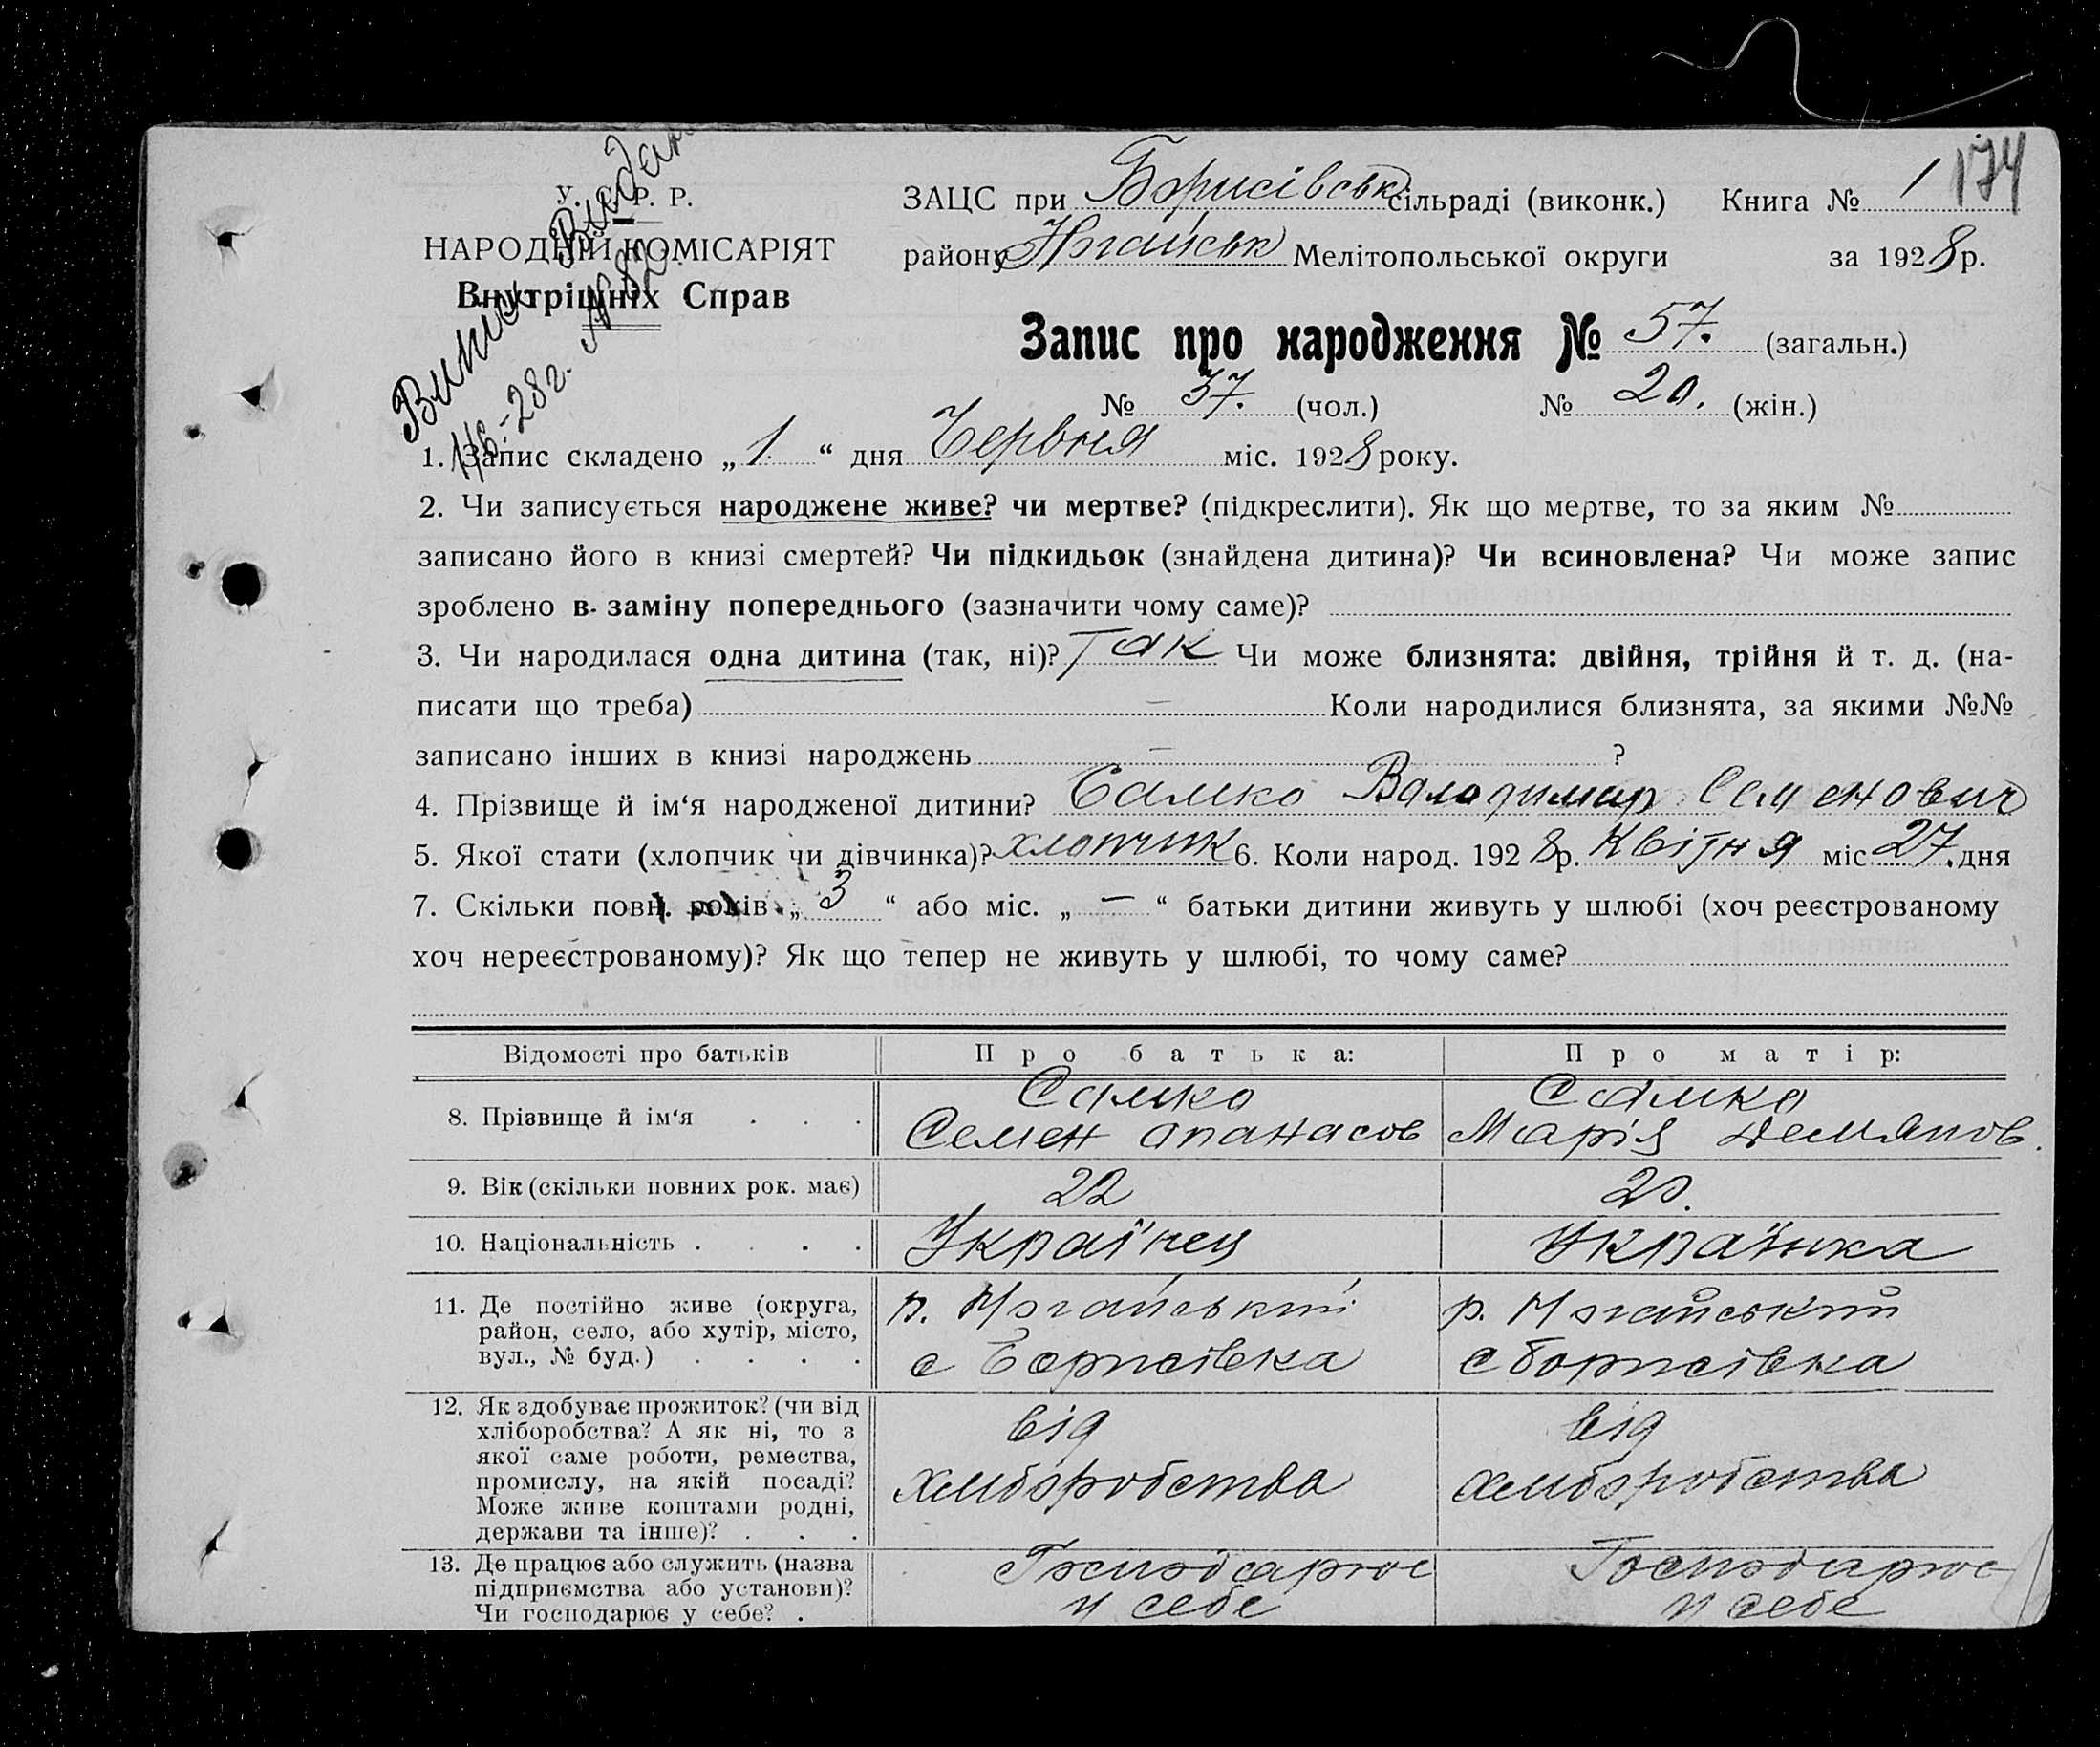 174
У. С. Р. Р.
НАРОДНІЙ КОМІСАРІЯТ
Внутрішніх Справ
Виписка Видана
1/6-28г. №
ЗАЦС при Борисівськ сільраді (виконк.) Книга № 1
району Ногайськ Мелітопольської округи за 1928 р.
Запис про народження № 57. (загальн.)
№ 37. (чол.) № 20. (жін.)
1. Запис складено „ 1 “ дня Червня міс. 1928 року.
2. Чи записується народжене живе? чи мертве? (підкреслити). Як що мертве, то за яким №
записано його в книзі смертей? Чи підкидьок (знайдена дитина)? Чи всиновлена? Чи може запис
зроблено в-заміну попереднього (зазначити чому саме)?
3. Чи народилася одна дитина (так, ні)? Так Чи може близнята: двійня, трійня й т. д. (на-
писати що треба) — Коли народилися близнята, за якими №№
записано інших в книзі народжень — ?
4. Прізвище й ім‘я народженої дитини? Самко Володимир Семенович
5. Якої стати (хлопчик чи дівчинка)? хлопчик 6. Коли народ. 1928 р. Квітня міс. 27. дня
7. Скільки повн. років „ 3 “ або міс. „ — “ батьки дитини живуть у шлюбі (хоч реєстрованому
хоч нереєстрованому)? Як що тепер не живуть у шлюбі, то чому саме?
Відомості про батьків Про батька: Про матір:
8. Прізвище й ім‘я . . . Самко Семен Апанасов Самко Марія Демянов.
9. Вік (скільки повних рок. має) 22 20.
10. Національність . . . . Українец Українка
11. Де постійно живе (округа, р. Ногайський р. Ногайський
район, село, або хутір, місто, с Борисівка с Борисівка
вул., № буд.) . . . .
12. Як здобуває прожиток? (чи від від від
хліборобства? А як ні, то з
якої саме роботи, ремества, хліборобства хліборобства
промислу, на якій посаді?
Може живе коштами родні,
держави та інше)? . . .
13. Де працює або служить (назва Господарює Господарює
підприємства або установи)? у себе у себе
Чи господарює у себе? .